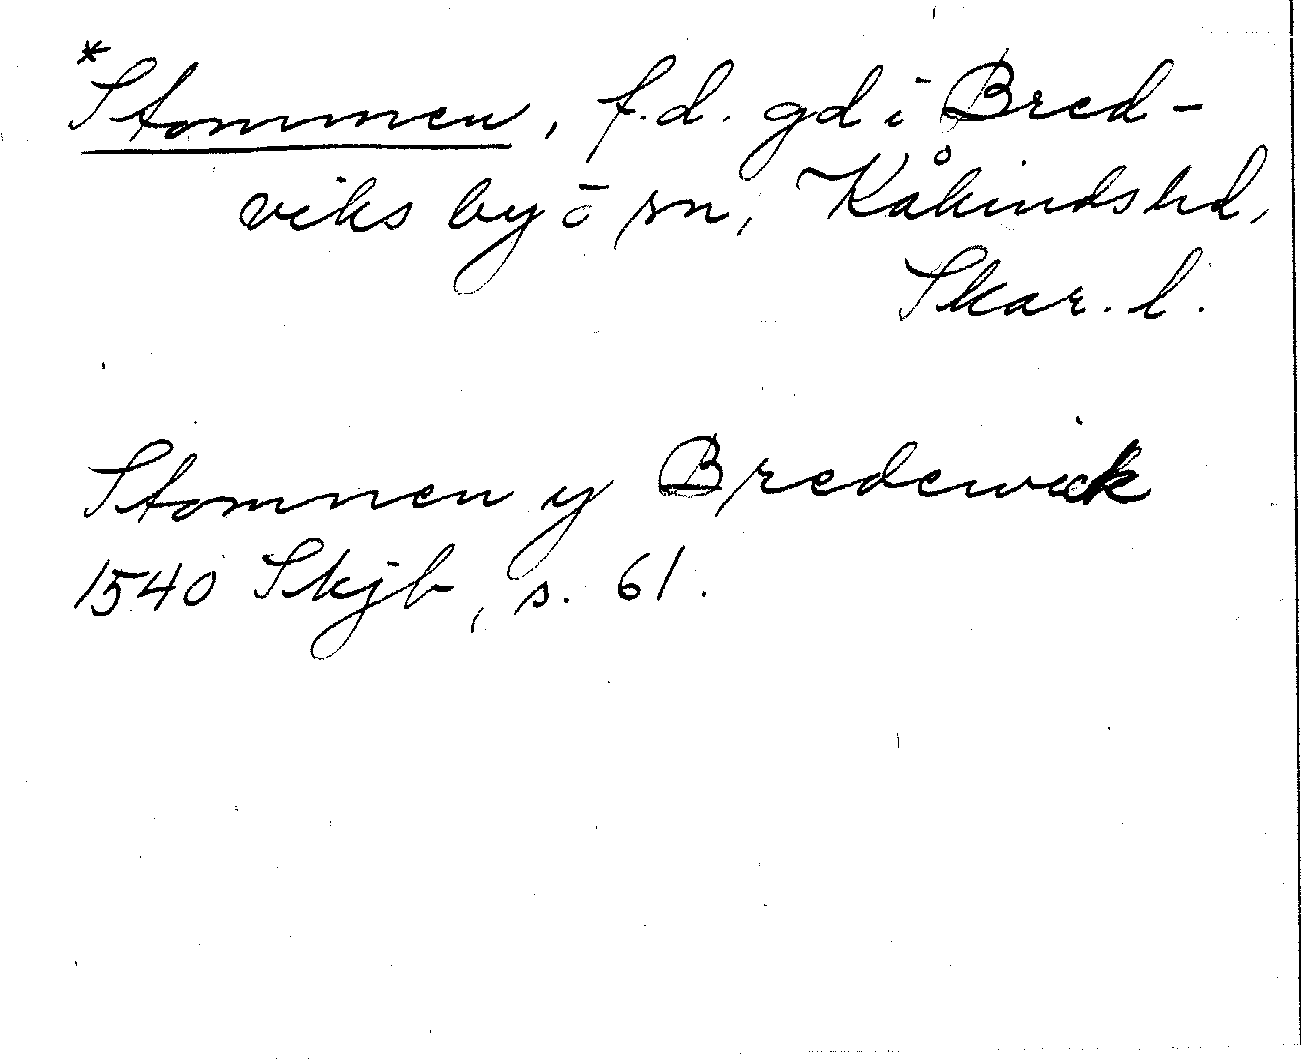 *Stommen, f.d. gd i Bred-
viks by o sn, Kåkinds hd,
Skar. l.
Stomnen y Bredewick
1540 Skjb, s. 61.